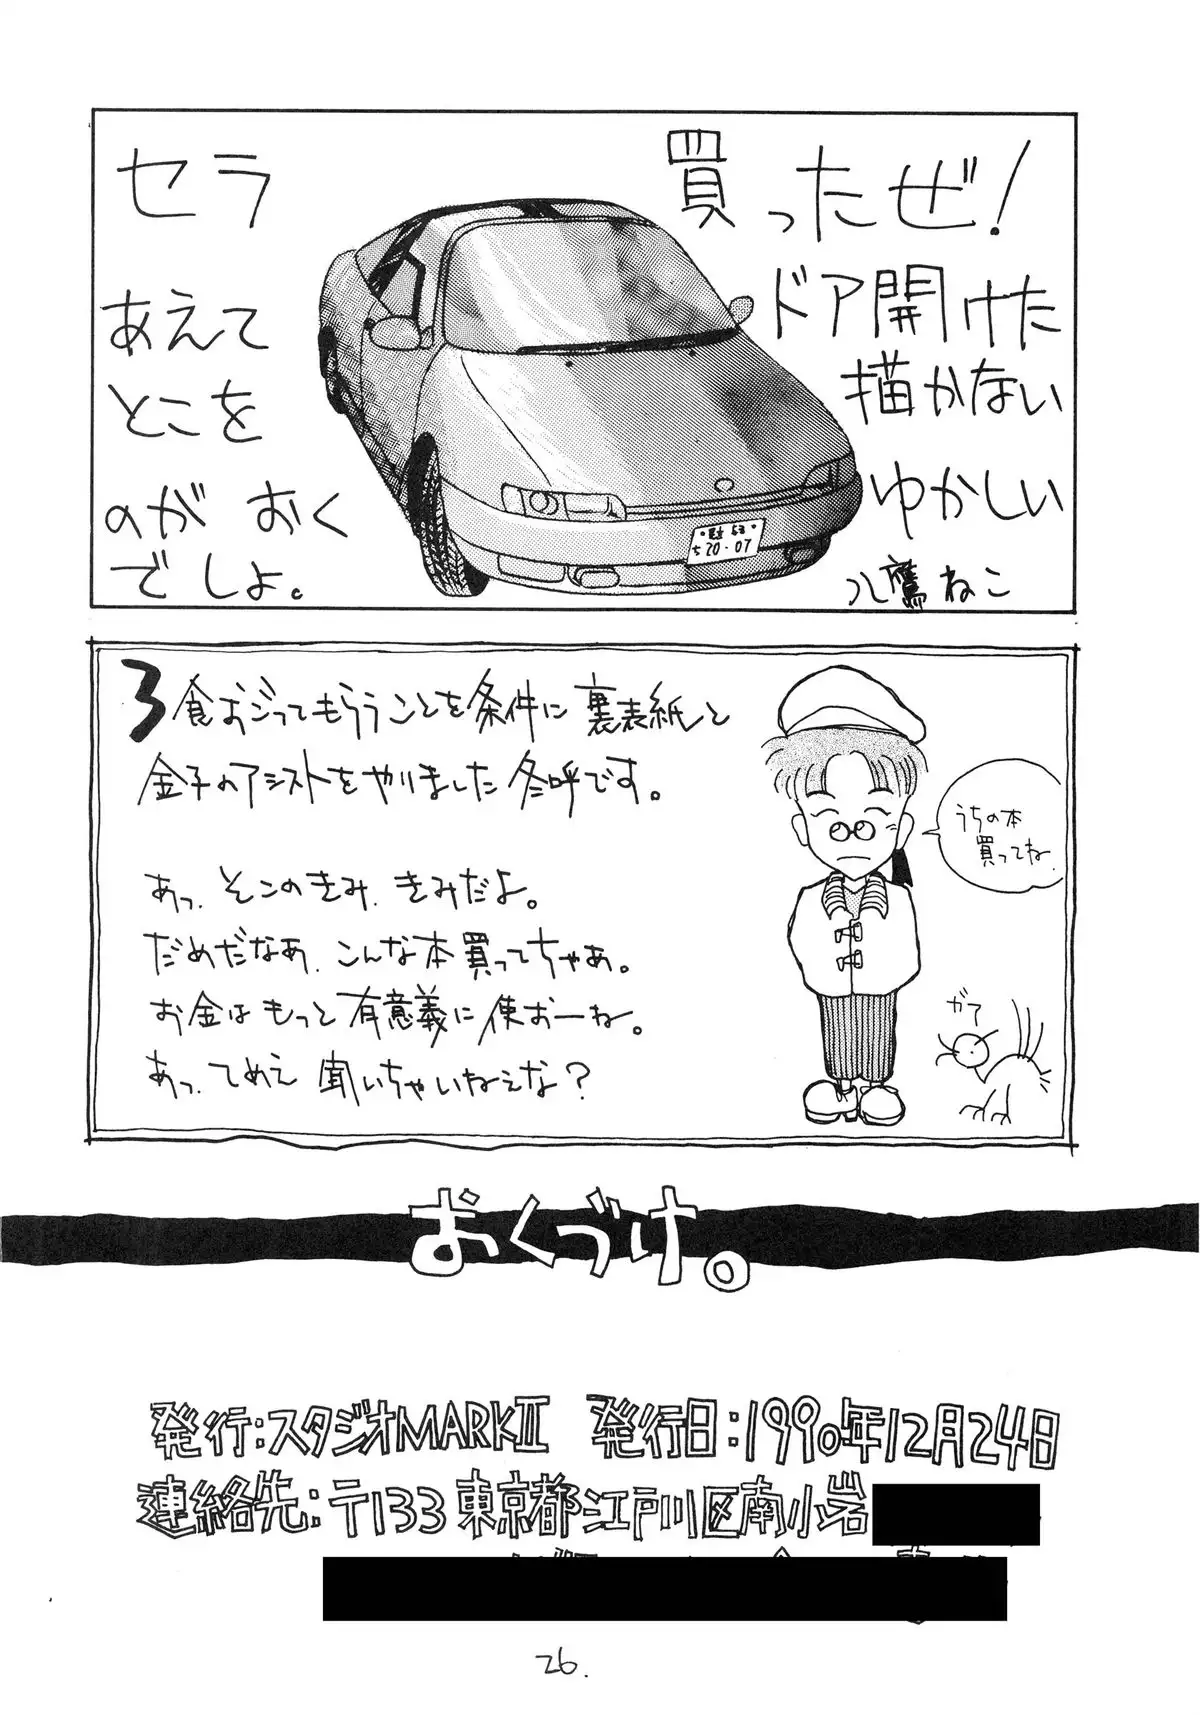 セラ 買ったぜ!
あえて ドア開けた
とこを 描かない
のが おく ゆかしい
でしょ。
八鷹ねこ
20-07
3食おごってもらうことを条件に裏表紙と
金子のアシストをやりました冬呼です。
あっ、そこのきみ、きみだよ。
だめだなあ、こんな本買ってちゃあ。
お金はもっと有意義に使おーね。
あっ、てめえ聞いちゃいねえな?
うちの本
買ってね
ガて
おくづけ。
発行:スタジオMARKⅡ 発行日:1990年12月24日
連絡先:〒133 東京都江戸川区南小岩
26.